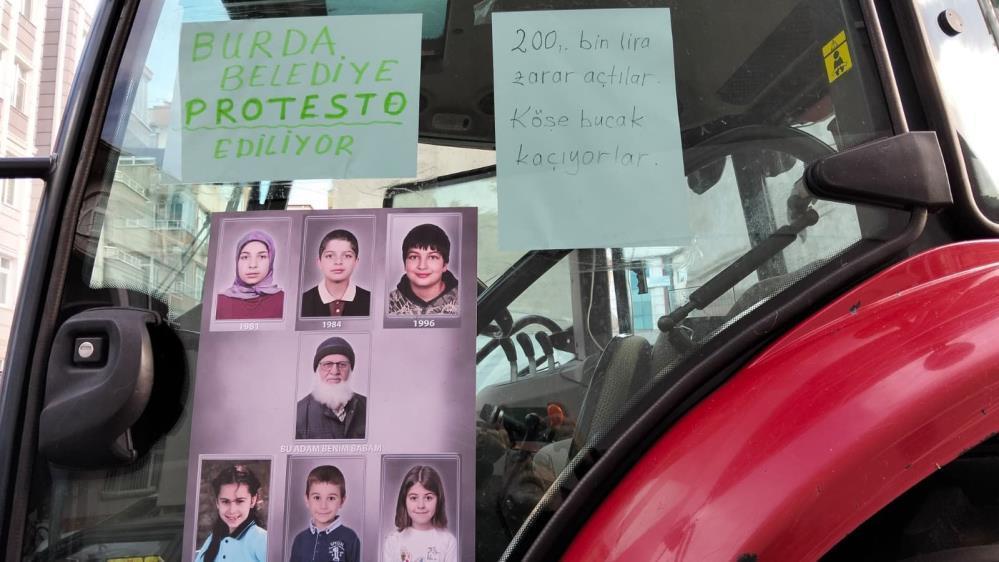 BURDA
BELEDİYE
PROTESTO
EDİLİYOR
200,. bin lira
zarar açtılar.
Köşe bucak
kaçıyorlar.
1981
1984
1996
BU ADAM BENİM BABAM